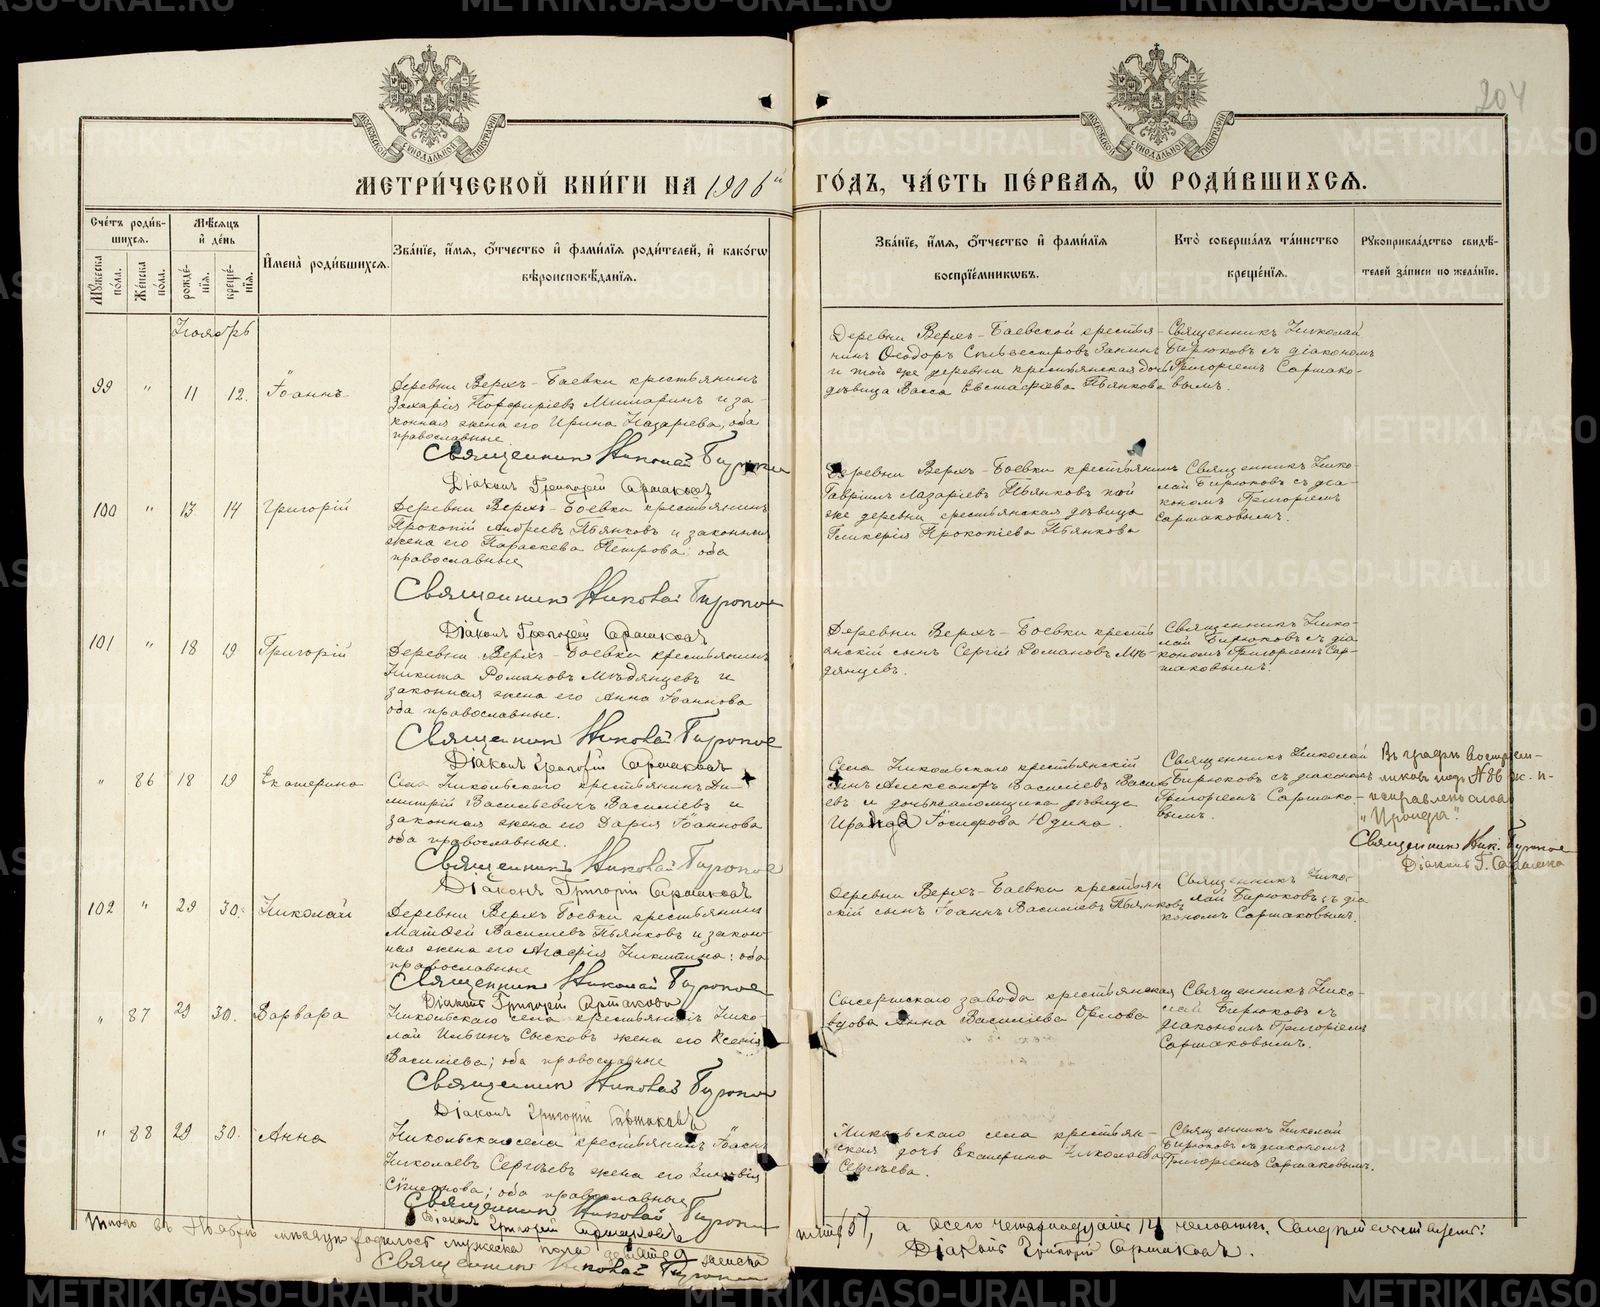 204
МЕТРИ́ЧЕСКОЙ КНИ́ГИ НА 1906й ГО́ДЪ, ЧА́СТЬ ПЕ́РВАЯ, Ѽ РОДИ́ВШИХСЯ.
Сче́тъ роди́вшихся.
Мꙋ́жеска по́ла.
Же́нска по́ла.
Мѣ́сяцъ и́ де́нь
рожде́нїя.
креще́нїя.
И҆мена̀ роди́вшихся.
Зва́нїе, и҆́мя, ѻ҆́тчество и҆ фами́лїя роди́телей, и҆ како́гѡ
вѣроисповѣ́данїя.
Зва́нїе, и҆́мя, ѻ҆́тчество и҆ фами́лїя
воспрїе́мникѡвъ.
Кто̀ соверша́лъ та́инство
креще́нїя.
Рꙋкоприкла́дство свидѣ́-
телей за́писи по жела́нїю.
Ноябрь
99 " 11 12. Іоаннъ
Деревни Верхъ-Баевки крестьянинъ
Захарія Порфиріевъ Мишаринъ и за-
конная жена его Ирина Назарьева, оба
православные.
Священник Николай Бирюков
Діаконъ Григорій Саршаковъ
Деревни Верхъ-Баевской крестья-
нинъ Ѳеодоръ Сильвестровъ Запинъ
и той же деревни крестьянская дочь
дѣвица Васса Евстафіева Пьянкова
Священникъ Николай
Бирюковъ съ діакономъ
Григоріемъ Саршако-
вымъ.
100 " 13 14 Григорій
Деревни Верхъ-Боевки крестьянинъ
Прокопій Андреевъ Пьянковъ и законная
жена его Параскева Петрова: оба
православные
Священник Николай Бирюков
Діаконъ Григорій Саршаковъ
Деревни Верхъ-Боевки крестьянинъ
Гавріилъ Лазаріевъ Пьянковъ той
же деревни крестьянская дѣвица
Гликерія Прокопіева Пьянкова
Священникъ Нико-
лай Бирюковъ съ діа-
кономъ Григоріемъ
Саршаковымъ.
101 " 18 19 Григорій
Деревни Верхъ-Боевки крестьянинъ
Никита Романовъ Мѣдянцевъ и
законная жена его Анна Іоаннова
оба православные.
Священник Николай Бирюков
Діаконъ Григорій Саршаковъ
Деревни Верхъ-Боевки кресть-
янскій сынъ Сергій Романовъ Мѣ-
дянцевъ.
Священникъ Нико-
лай Бирюковъ съ діа-
кономъ Григоріемъ Сар-
шаковымъ.
" 86 18 19 Екатерина
Села Никольскаго крестьянинъ Ди-
митрій Васильевичъ Васильевъ и
законная жена его Дарія Іоаннова
оба православные.
Священникъ Николай Бирюков
Діаконъ Григорій Саршаковъ
Села Никольскаго крестьянскій
сынъ Александръ Васильевъ Василь-
евъ и дочь дѣвица
Ираида Іосифова Юдина.
Священникъ Николай
Бирюковъ съ діакономъ
Григоріемъ Саршако-
вымъ.
Въ графѣ воспріем-
никовъ подъ № 86 ж. п.
исправлено слово
„Ираида“.
Священник Ник. Бирюков
Діаконъ Г. Саршаковъ
102 " 29 30. Николай
Деревни Верхъ Боевки крестьянинъ
Матѳей Васильевъ Пьянковъ и закон-
ная жена его Агафія Никитина: оба
православные
Священник Николай Бирюков
Діаконъ Григорій Саршаковъ
Деревни Верхъ-Баевки крестьян
скій сынъ Іоаннъ Васильевъ Пьянковъ
Священникъ Нико-
лай Бирюковъ съ діа
кономъ Саршаковымъ.
" 87 29 30. Варвара
Никольскаго села крестьянинъ Нико-
лай Ильинъ Сысковъ жена его Ксенія
Васильева; оба православные
Священник Николай Бирюков
Діаконъ Григорій Саршаковъ
Сысертскаго завода крестьянская
вдова Анна Васильева Орлова
Священникъ Нико-
лай Бирюковъ съ
діакономъ Григоріемъ
Саршаковымъ.
" 88 29 30. Анна
Никольскаго села крестьянинъ Іоаннъ
Николаевъ Сергѣевъ жена его Зиновія
Стефанова; оба православные
Священник Николай Бирюков
Діаконъ Григорій Саршаковъ
Никольскаго села крестьян-
ская дочь Екатерина Николаева
Сергѣева.
Священникъ Николай
Бирюковъ съ діакономъ
Григоріемъ Саршаковымъ.
Итого въ Ноябрѣ месяцѣ родилось мужеска пола девять 9 женска
пять (5), а всего четырнадцать 14 человѣкъ.
Священник Николай Бирюков
Діаконъ Григорій Саршаковъ.
METRIKI.GASO-URAL.RU